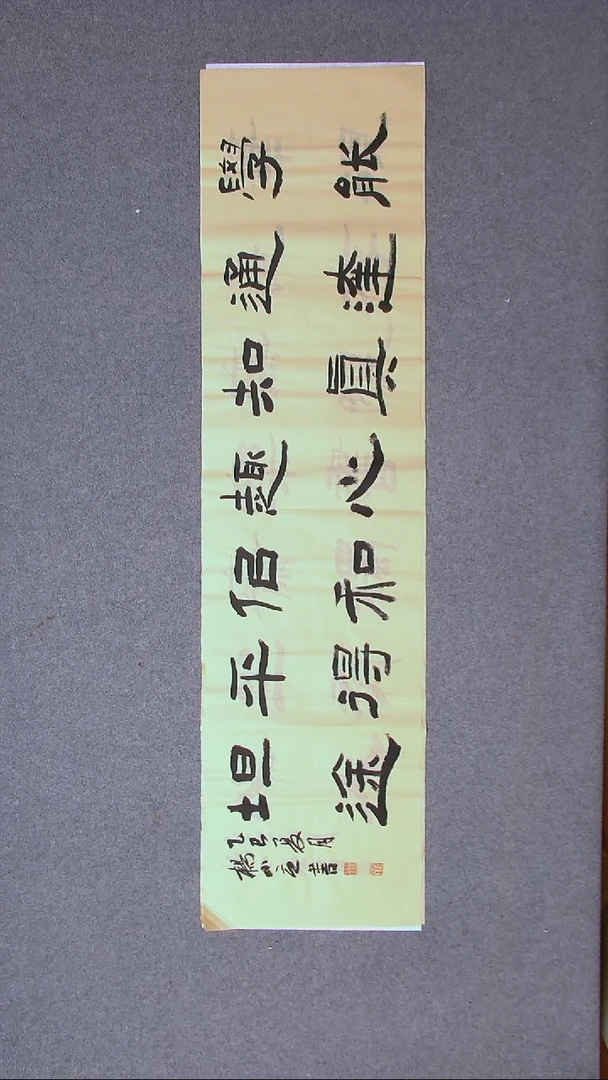 學能
通達
知真
趣心
信和
平得
坦途
乙巳夏月
楊小書